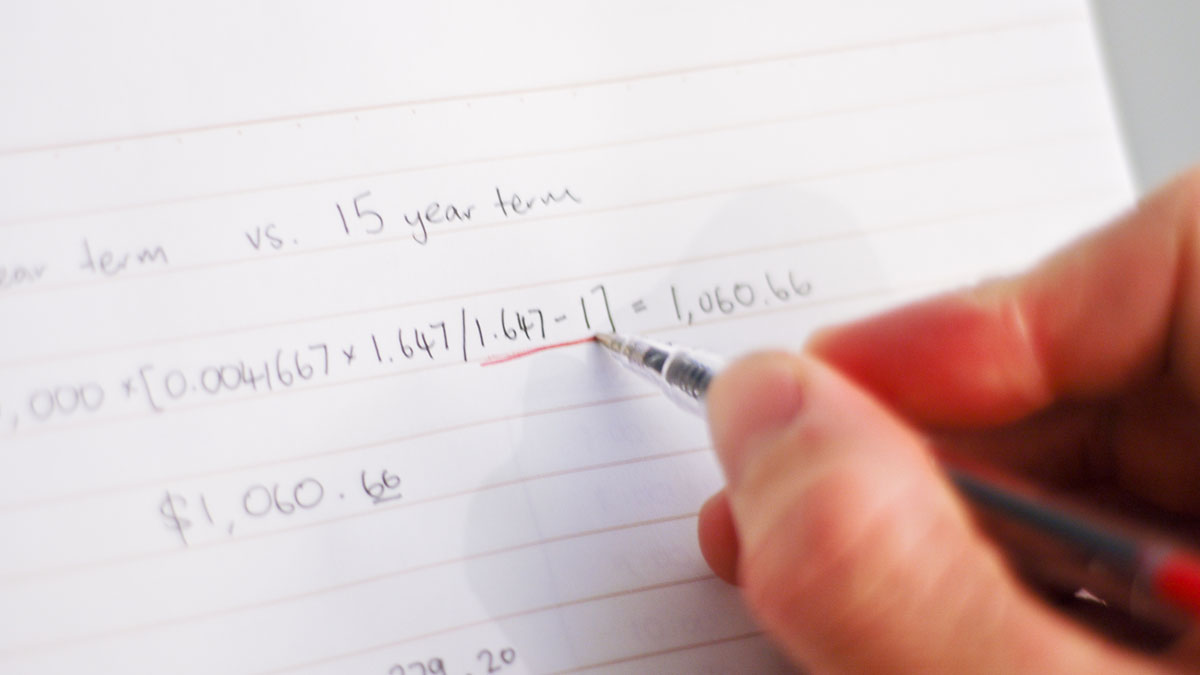 ear term vs. 15 year term
,000 × [0.0041667 × 1.647/1.647-1] = 1,060.66
$1,060.66
279.20